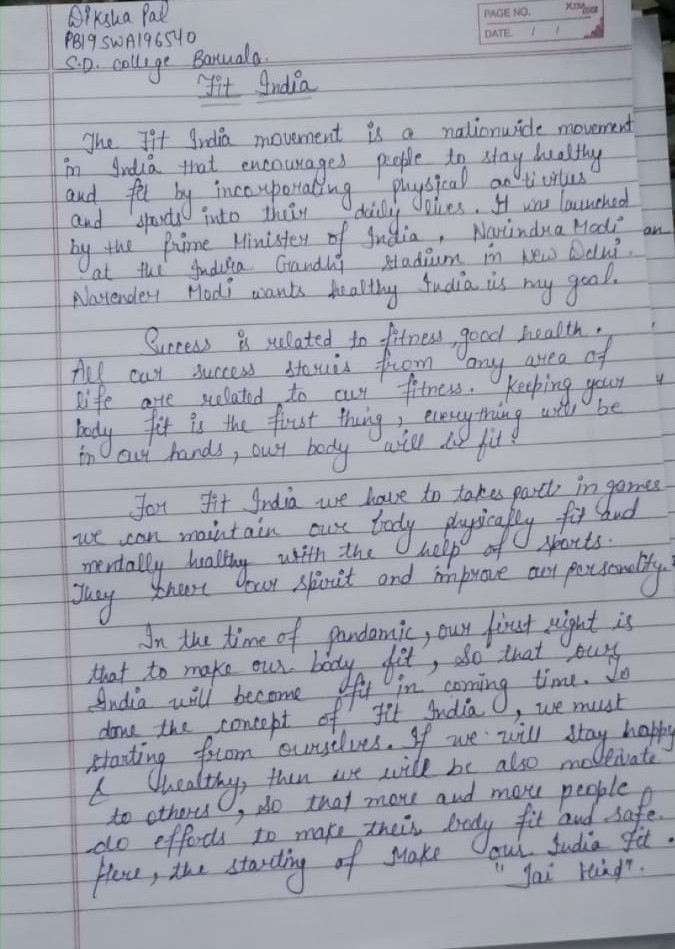 Diksha Pal
PB19SWA196540
S.D. college Barnala.
PAGE NO.
DATE. / /
Fit India
The Fit India movement is a nationwide movement
in India that encourages people to stay healthy
and fit by incorporating physical activities
and sports into their daily lives. It was launched
by the Prime Minister of India, Narindra Modi an
at the Indira Gandhi stadium in New Delhi.
Narender Modi wants healthy India is my goal.
Success is related to fitness, good health.
All our success stories from any area of
life are related to our fitness. Keeping your
body fit is the first thing, everything will be
in our hands, our body will be fit.
For Fit India we have to takes parts in games
we can maintain our body physically fit and
mentally healthy with the help of sports.
They cheer our spirit and improve our personality.
In the time of pandamic, our first right is
that to make our body fit, so that our
India will become fit in coming time. To
done the concept of Fit India, we must
starting from ourselves. If we will stay happy
& healthy, then we will be also motivate
to others, so that more and more people
do efforts to make their body fit and safe.
Here, the starting of make our India fit.
"Jai Hind".